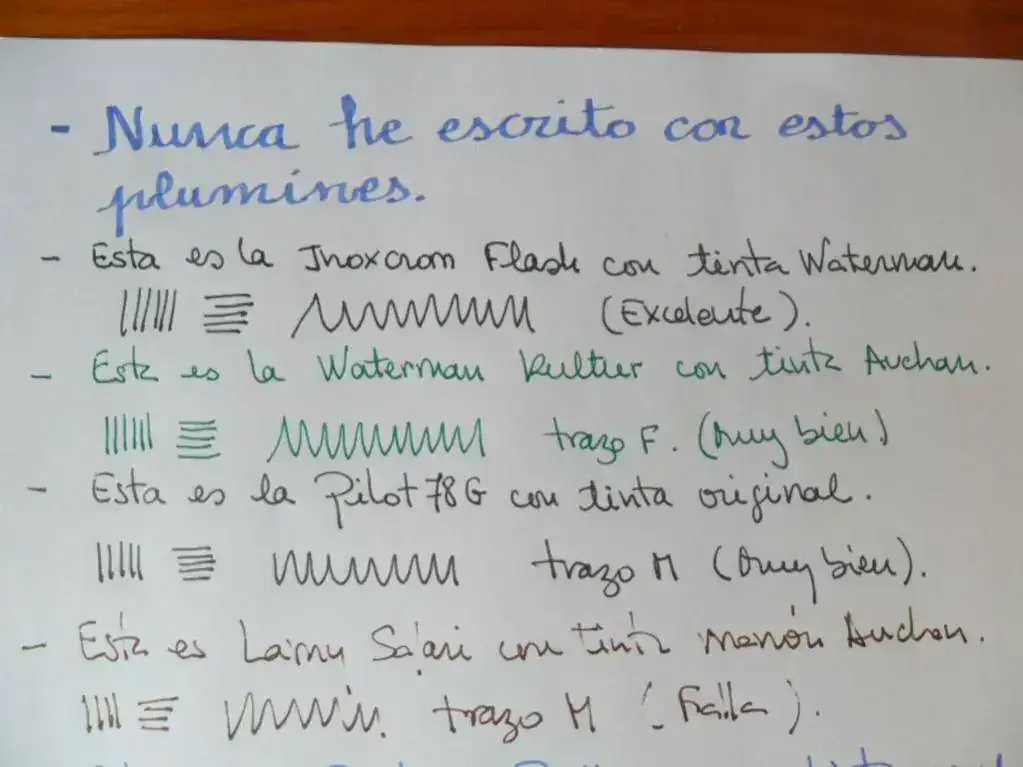 - Nunca he escrito con estos
plumines.
- Esta es la Inoxcrom Flash con tinta Waterman.
(Excelente).
- Esta es la Waterman Kultur con tinta Auchan.
trazo F. (Muy bien)
- Esta es la Pilot 78G con tinta original.
trazo M (Muy bien).
- Esta es Lamy Safari con tinta marrón Auchan.
trazo M (Falla).